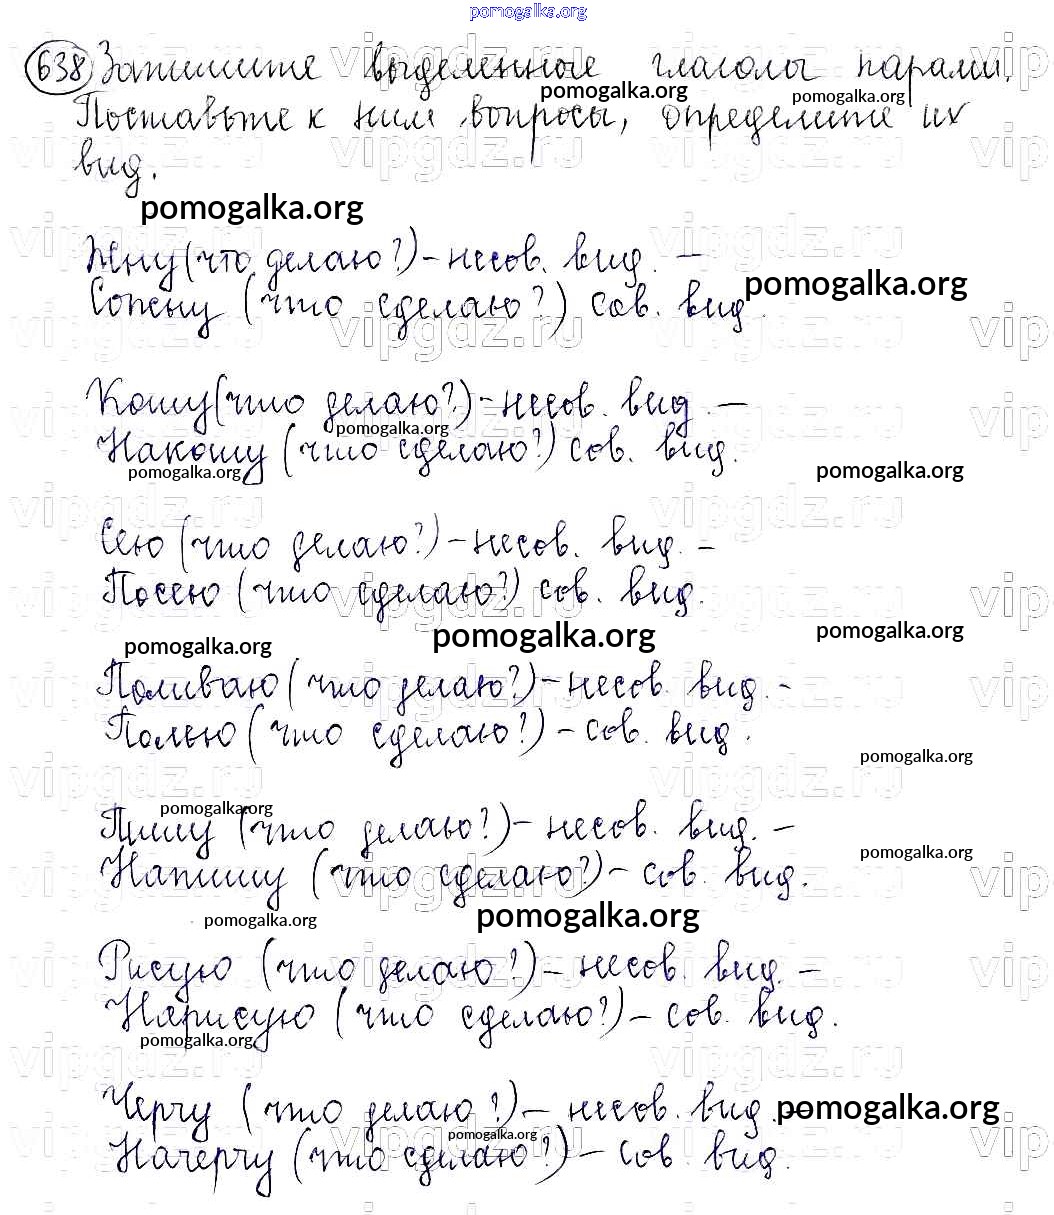 pomogalka.org
638 Запишите выделенные глаголы парами.
pomogalka.org pomogalka.org
Поставьте к ним вопросы, определите их
вид.
pomogalka.org
Жну (что делаю?) – несов. вид. –
pomogalka.org
Сожну (что сделаю?) сов. вид.
vipgdz.ru
Кошу (что делаю?) – несов. вид. –
pomogalka.org
Накошу (что сделаю?) сов. вид.
pomogalka.org pomogalka.org
vipgdz.ru
Сею (что делаю?) – несов. вид. –
Посею (что сделаю?) сов. вид.
pomogalka.org pomogalka.org pomogalka.org
Поливаю (что делаю?) – несов. вид. –
Полью (что сделаю?) – сов. вид.
pomogalka.org
vipgdz.ru
pomogalka.org
Пишу (что делаю?) – несов. вид. –
pomogalka.org
Напишу (что сделаю?) – сов. вид.
pomogalka.org pomogalka.org
Рисую (что делаю?) – несов. вид. –
Нарисую (что сделаю?) – сов. вид.
pomogalka.org
Черчу (что делаю?) – несов. вид. –
pomogalka.org
pomogalka.org
Начерчу (что сделаю?) – сов. вид.